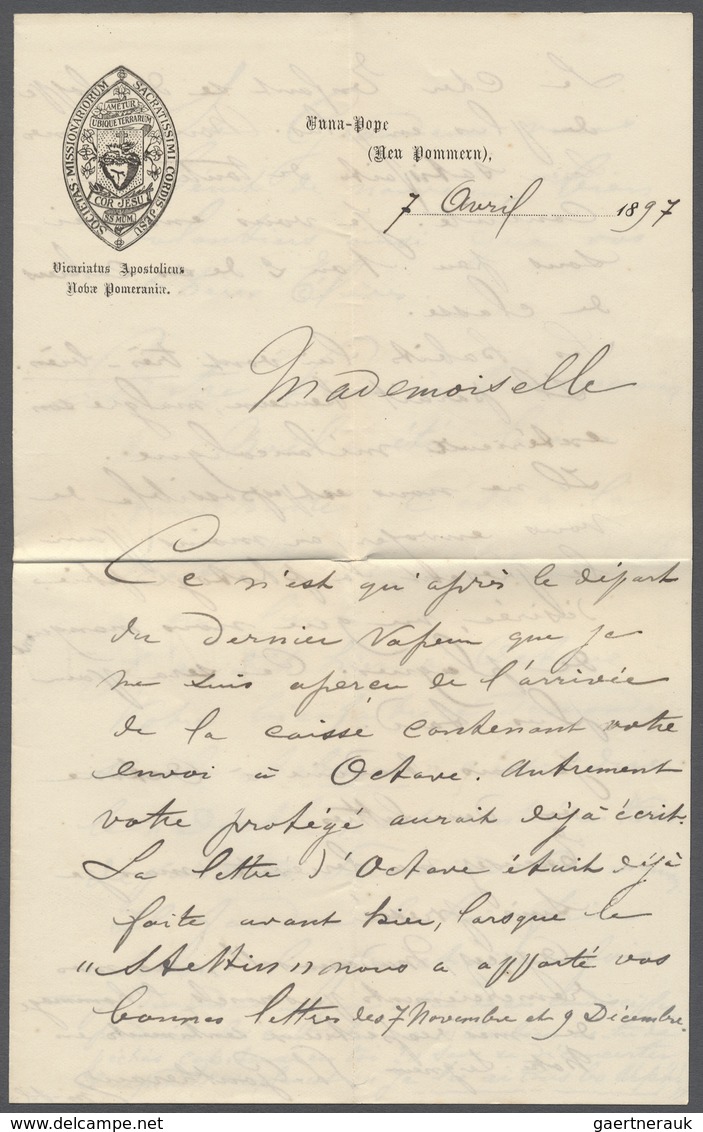 SOCIETAS · MISSIONARIORUM SACRATISSIMI CORDIS JESU
AMETUR
UBIQUE TERRARUM
COR JESU
SS MCM.
Vicariatus Apostolicus
Novæ Pomeraniæ.
Vuna-Pope
(Neu Pommern),
7 Avril 1897
Mademoiselle
Ce n'est qu'après le départ
du dernier vapeur que je
me suis aperçu de l'arrivée
de la caisse contenant votre
envoi à Octave. Autrement
votre protégé aurait déjà écrit.
La lettre d'Octave était déjà
faite avant hier, lorsque le
"Stettin" nous a apporté vos
bonnes lettres des 7 Novembre et 9 Décembre.
gaertnerauk @ delcampe.net